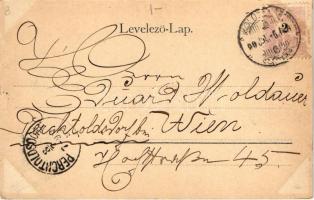 1-
Levelező-Lap.
Herrn
Eduard Moldauer
Perchtoldsdorf b/ Wien
Hochstrasse 45.
PERCHTOLDSDORF